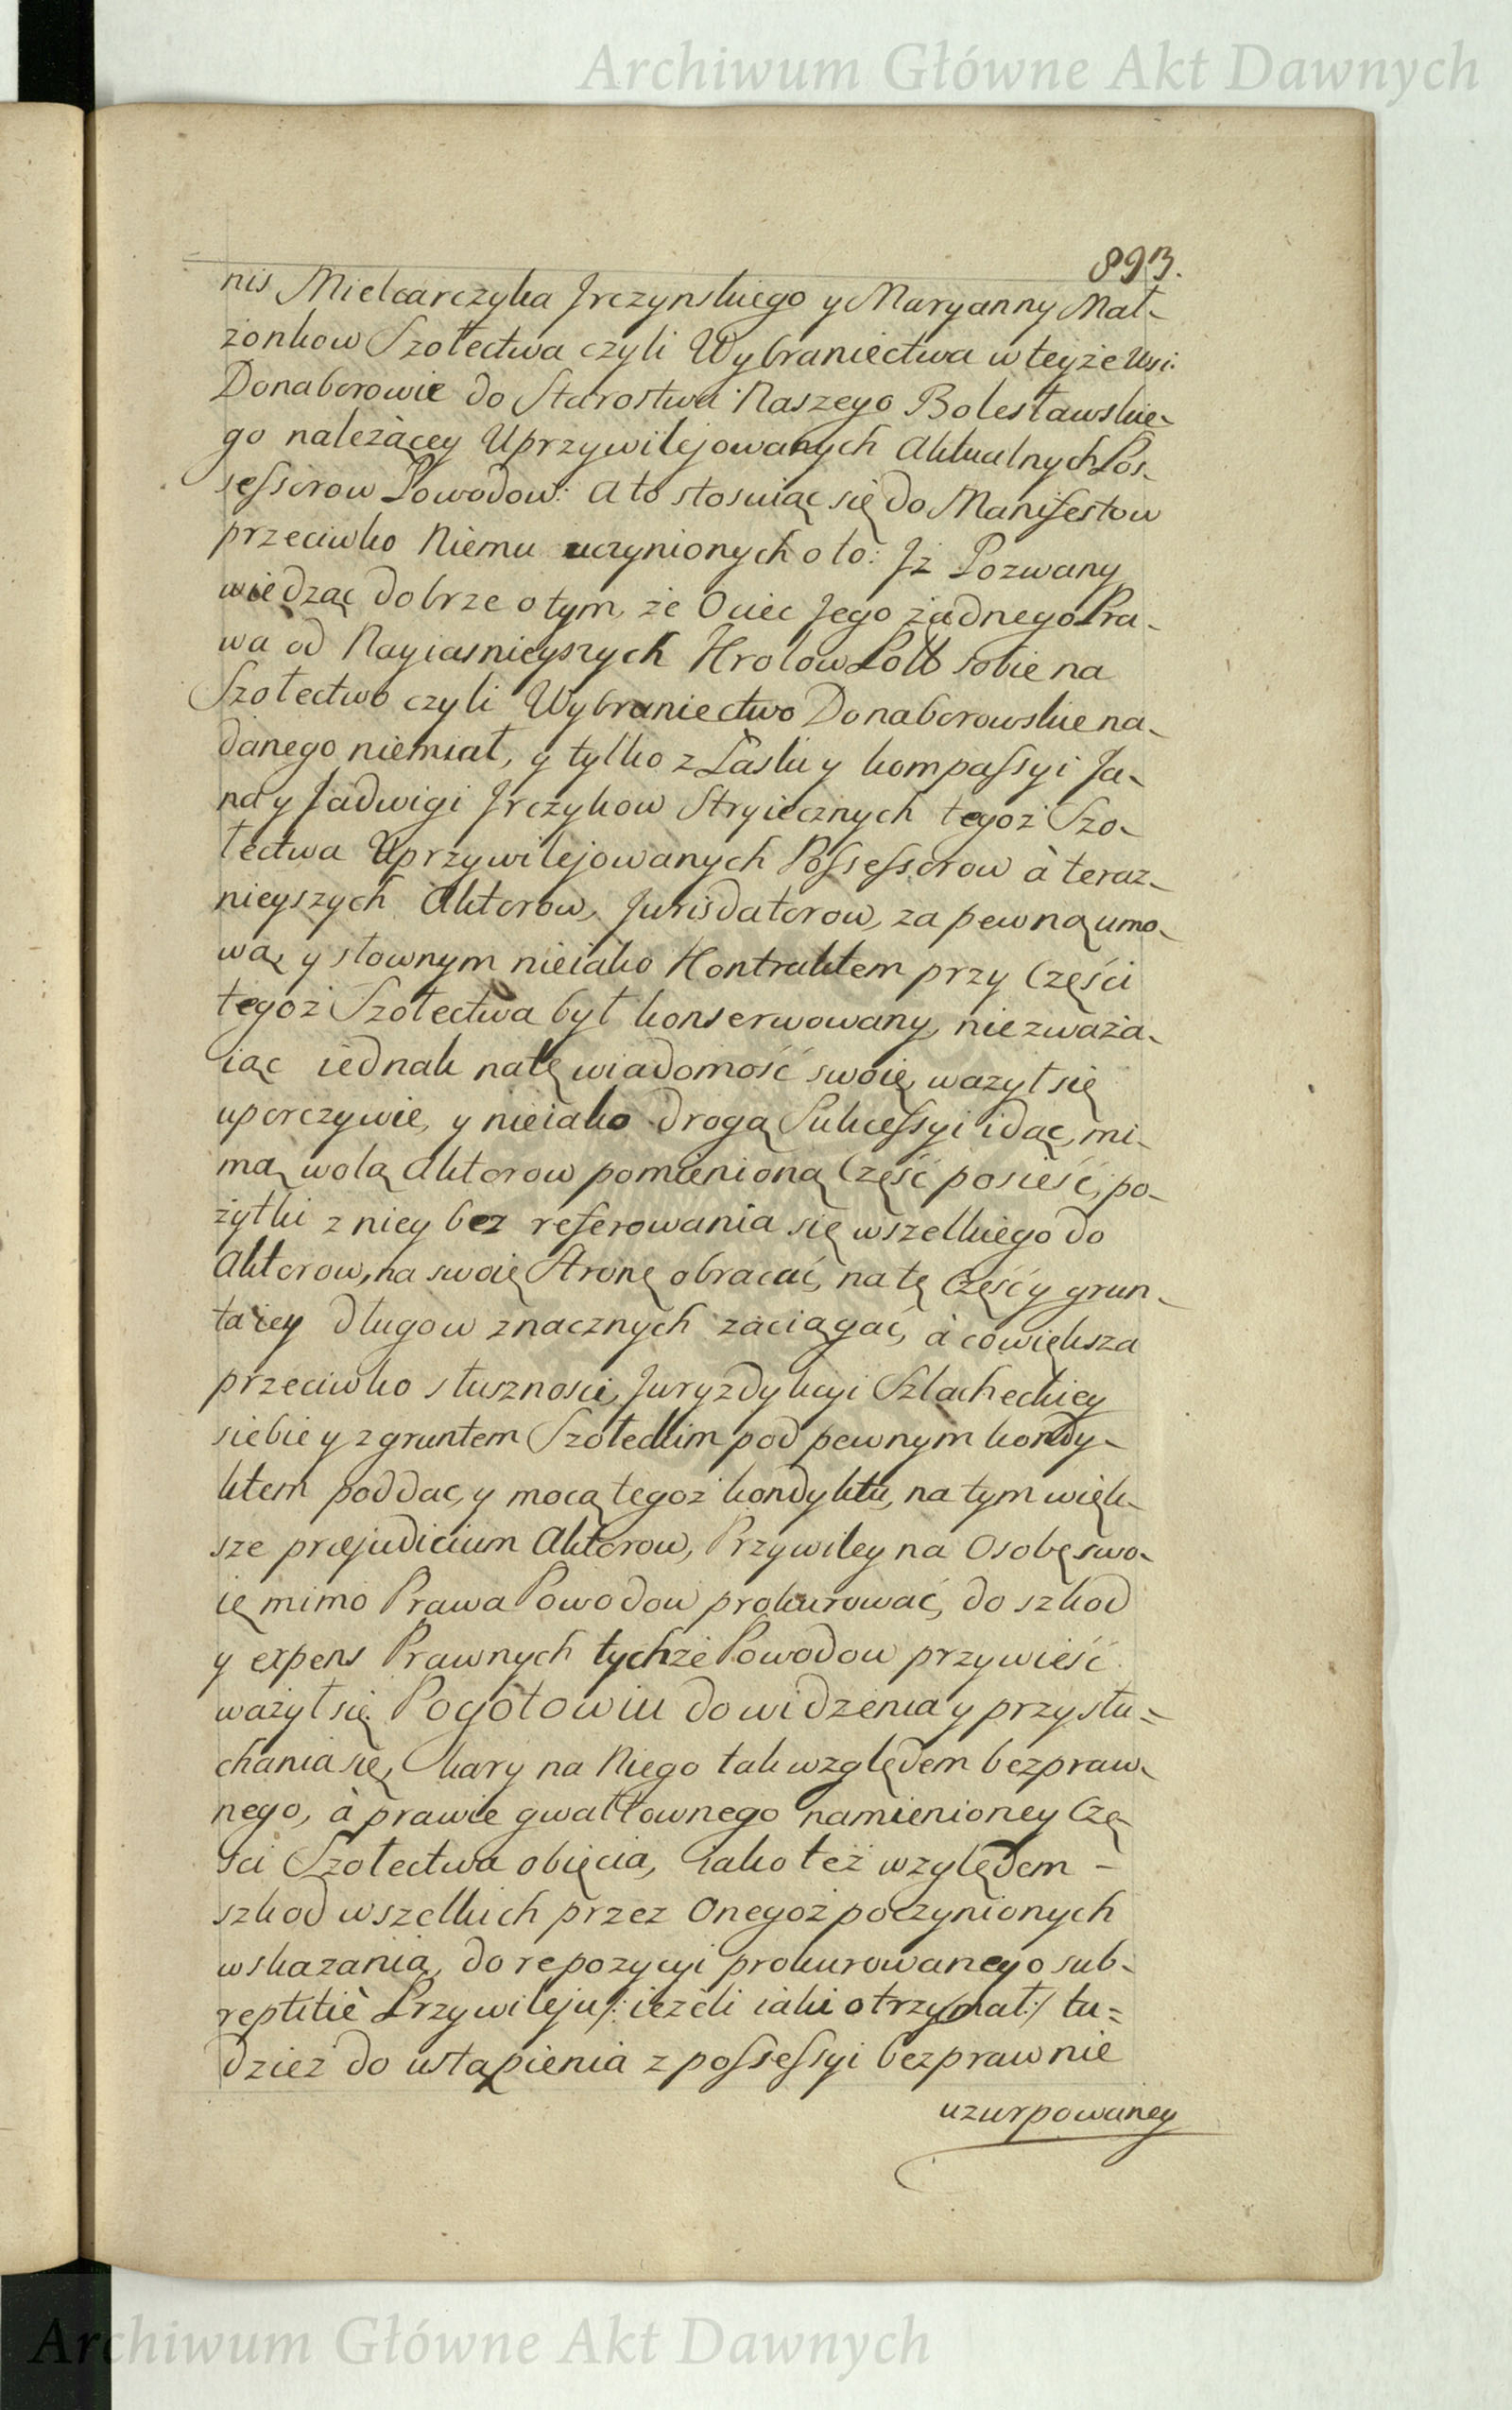 Archiwum Główne Akt Dawnych
893.
nis Mielcarczyka Jrczynskiego y Maryanny Mał-
żonkow Szołectwa czyli Wybraniectwa w teyże Wsi
Donaborowie do Starostwa Naszego Bolesławskie-
go należącey Uprzywilejowanych Aktualnych Pos-
sessorow Powodow: A to stosuiąc się do Manifestow
przeciwko Niemu uczynionych o to: Jż Pozwany
wiedząc dobrze o tym, że Ociec Jego żadnego Pra-
wa od Nayiasnieyszych Krolow Poll: sobie na
Szołectwo czyli Wybraniectwo Donaborowskie na-
danego niemiał, y tylko z Łaski y kompassyi Ja-
na y Jadwigi Jrczykow Stryiecznych tegoż Szo-
łectwa Uprzywilejowanych Possessorow à teraz-
nieyszych Aktorow, Jurisdatorow, za pewną umo-
wą, y słownym nieiako Kontraktem przy Części
tegoż Szołectwa był konserwowany, niezważa-
iąc iednak natę wiadomość swoię, ważył się
uporczywie, y nieiako drogą Sukcessyi idąc, mi-
mą wolą Aktorow pomienioną Część posieść, po-
żytki z niey bez referowania się wszelkiego do
Aktorow, na swoię Stronę obracać, na tę Część y grun-
ta iey długow znacznych zaciągać, à cowiększa
przeciwko słusznosci, Juryzdykcyi Szlacheckiey
siebie y z gruntem Szołeckim pod pewnym kondy-
ktem poddac, y mocą tegoż kondyktu, na tym więk-
sze præjudicium Aktorow, Przywiley na Osobę swo-
ię mimo Prawa Powodow prokurować, do szkod
y expens Prawnych tychże Powodow przywieść
ważył się. Pogotowiu do widzenia y przysłu=
chania się, kary na Niego tak względem bezpraw-
nego, à prawie gwałtownego namienioney Czę-
ści Szołectwa obięcia, iako też względem -
szkod wszelkich przez Onegoż poczynionych
wskazania, do repozycyi prokurowanego sub-
reptitiè Przywileju/: ieżeli iaki otrzymał:/ tu=
dzież do ustąpienia z possessyi bezprawnie
uzurpowaney
Archiwum Główne Akt Dawnych